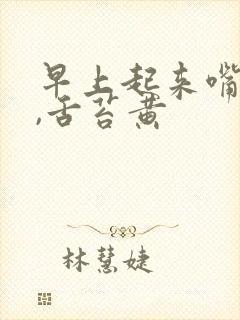 早上起来嘴
,舌苔黄
林慧婕